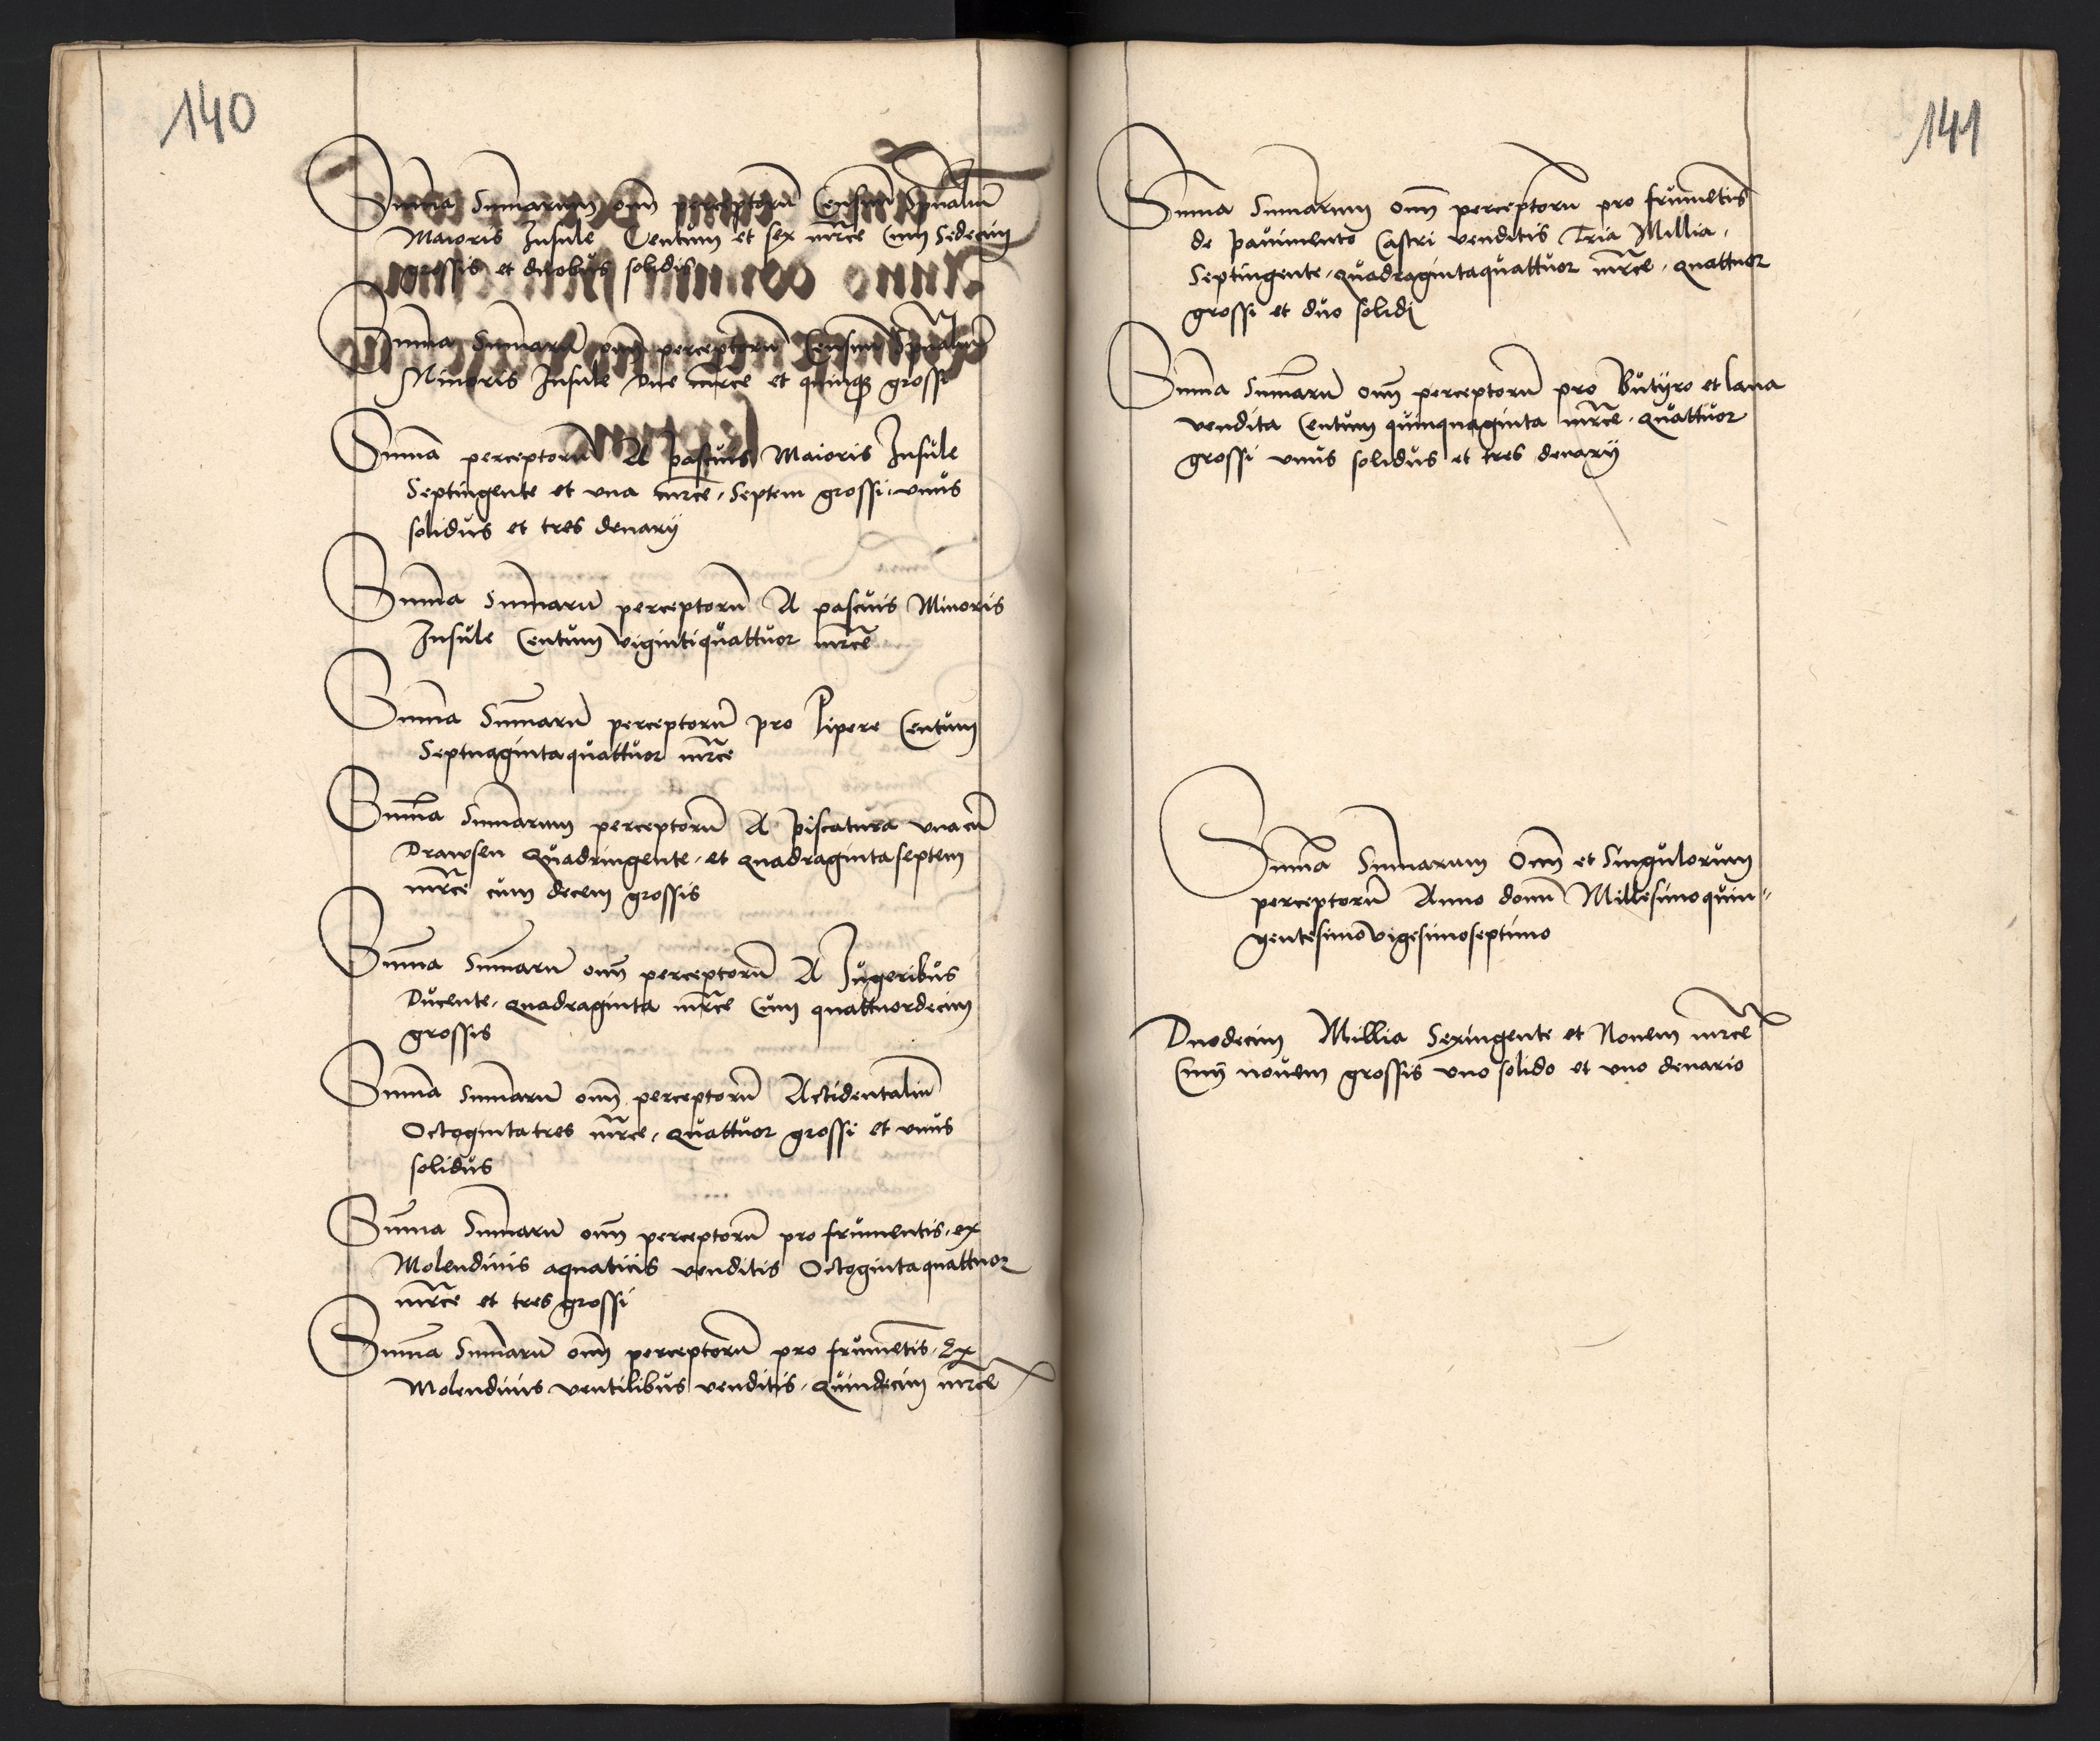 140
Suma Sumarum oım perceptorū Censuū Spūaliū
Maioris Insule Centum et sex mrce Cum Sedecim
grossis et duobus solidis
Suma Sumarū oım perceptorū Censuū Spūaliū
Minoris Insule due mrce et quinqȝ grossi
Suma perceptorū A pascuis Maioris Insule
Septingente et vna mrce, Septem grossi, vnus
solidus et tres denarij
Suma Sumarū perceptorū A pascuis Minoris
Insule Centum vigintiquattuor mrce
Suma Sumarū perceptorū pro Pipere Centum
Septuagintaquattuor mrce
Suma Sumarum perceptorū A piscatura vnacū
Drawsen Quadringente, et quadragintaseptem
mrce cum decem grossis
Suma Sumarū oım perceptorū A Jugeribus
Ducente, quadraginta mrce Cum quattuordecim
grossis
Suma Sumarū oım perceptorū Actidentaliū
Octogintatres mrce, quattuor grossi et vnus
solidus
Suma Sumarū oım perceptorū pro frumentis, ex
Molendinis aquaticis venditis Octogintaquattuor
mrce et tres grossi
Suma Sumarū oım perceptorū pro frumētis, Ex
Molendinis ventilibus venditis, quindecim mrce
141
Suma Sumarum oım perceptorū pro frumētis
de pauimento Castri venditis Tria Millia,
Septingente, quadragintaquattuor mrce, quattuor
grossi et duo solidi
Suma Sumarū oım perceptorū pro Butijro et lana
vendita Centum quinquaginta mrce, quattuor
grossi vnus solidus et tres denarij
Suma Sumarum Oım et Singulorum
perceptorū Anno domī Millesimoquin-
gentesimovigesimoseptimo
Duodecim Millia Sexingente et Nouem mrce
Cum nouem grossis vno solido et vno denario